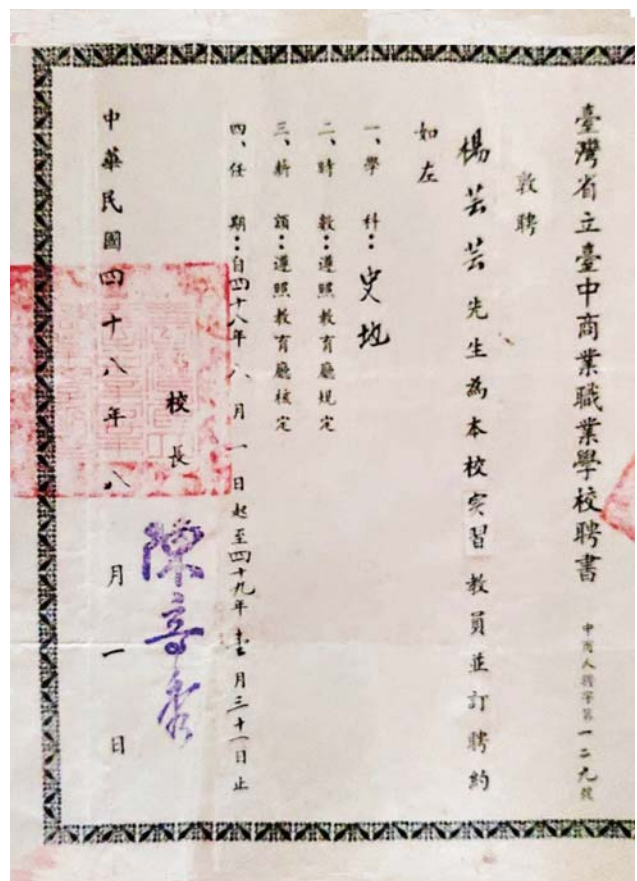 臺灣省立臺中商業職業學校聘書
中商人聘字第一二九號
敦聘
楊芸芸先生為本校实習教員並訂聘約
如左
一、學科：史地
二、時數：遵照教育廳規定
三、薪額：遵照教育廳核定
四、任期：自四十八年八月一日起至四十九年 月三十一日止
校長
中華民國四十八年八月一日